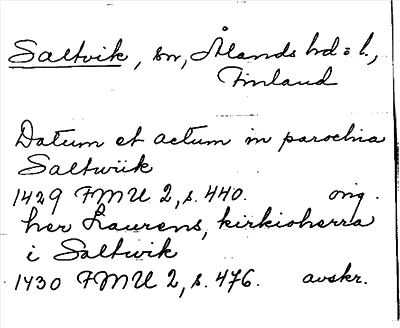 Saltvik, sn, Ålands hd o l.,
Finland
Datum et actum in parochia
Saltwiik
1429 FMU 2, s. 440. orig.
her Laurens, kirkioherra
i Saltwik
1430 FMU 2, s. 476. avskr.